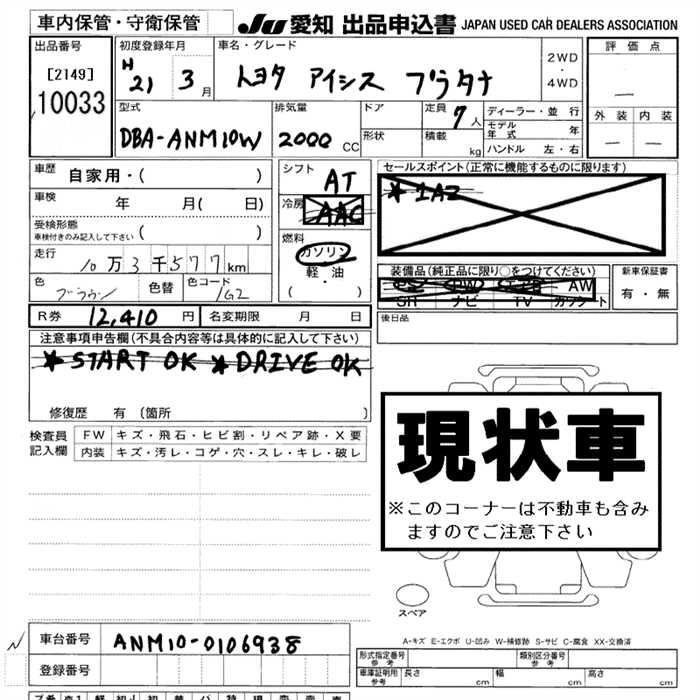 車内保管・守衛保管
JU 愛知 出品申込書 JAPAN USED CAR DEALERS ASSOCIATION
出品番号
[2149]
10033
初度登録年月
H 21 3月
車名・グレード
トヨタ アイシス プラタナ
2WD
・
4WD
評価点
—
外装 内装
— —
型式
DBA-ANM10W
排気量
2000 CC
ドア
形状
定員 7人
積載 kg
ディーラー・並行
モデル年式 年
ハンドル 左・右
車歴 自家用・( )
車検 年 月( 日)
受検形態
車検付きのみ記入して下さい ( )
走行 10万3千577km
色 ブラウン 色替 色コード 1G2
シフト AT
冷房 AAC
燃料
ガソリン
軽・油
( ・ )
セールスポイント(正常に機能するものに限ります)
★1AZ
装備品(純正品に限り○をつけてください)
PS PW エアB AW
SR ナビ TV カワシート
新車保証書
有・無
R券 12,410円 名変期限 月 日
後日品
注意事項申告欄(不具合内容等は具体的に記入して下さい)
★START OK ★DRIVE OK
修復歴 有〔箇所 〕
検査員記入欄
FW キズ・飛石・ヒビ割・リペア跡・X要
内装 キズ・汚レ・コゲ・穴・スレ・キレ・破レ
現状車
※このコーナーは不動車も含み
ますのでご注意下さい
スペア
A-キズ E-エクボ U-凹み W-補修跡 S-サビ C-腐食 XX-交換済
車台番号 ANM10-0106938
登録番号
形式指定番号 参考
類別区分番号 参考
車庫証明用 参考 長さ cm 幅 cm 高さ cm